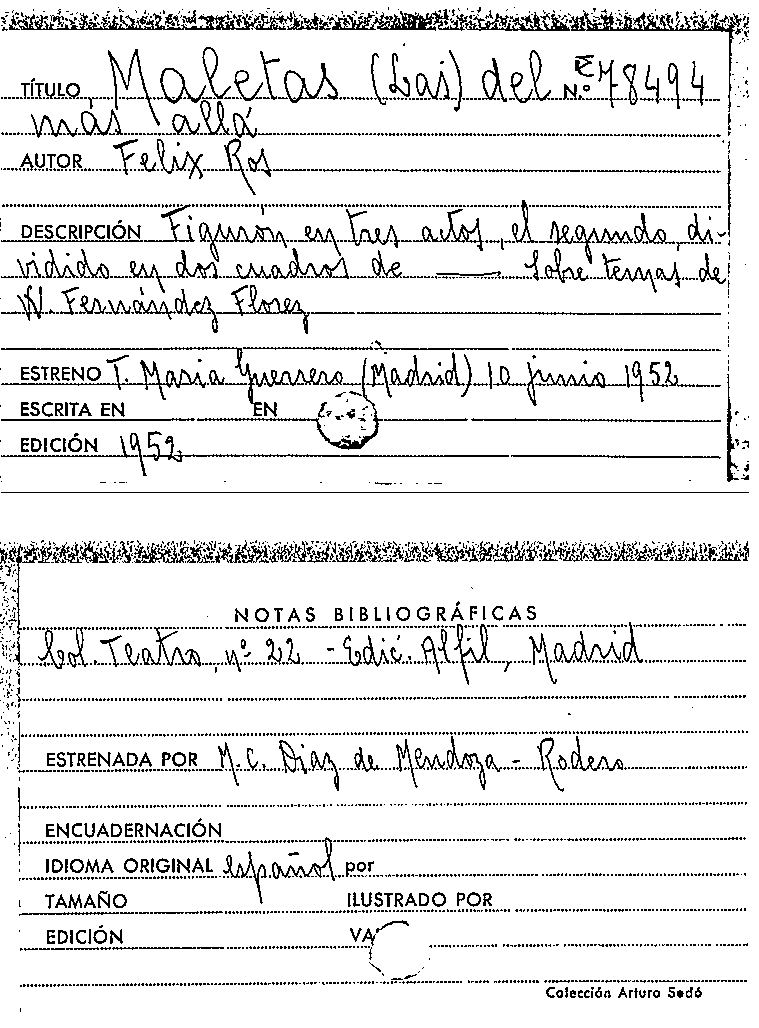 TÍTULO Maletas (Las) del N.º 78494
más allá
AUTOR Felix Ros
DESCRIPCIÓN Figurón en tres actos, el segundo, di-
vidido en dos cuadros de —— sobre temas de
W. Fernández Florez
ESTRENO T. Maria Guerrero (Madrid) 10 junio 1952
ESCRITA EN EN
EDICIÓN 1952
NOTAS BIBLIOGRÁFICAS
Col. Teatro, nº 22 - Edic. Alfil, Madrid
ESTRENADA POR M.C. Diaz de Mendoza - Rodero
ENCUADERNACIÓN
IDIOMA ORIGINAL español por
TAMAÑO ILUSTRADO POR
EDICIÓN VA
Colección Arturo Sedó